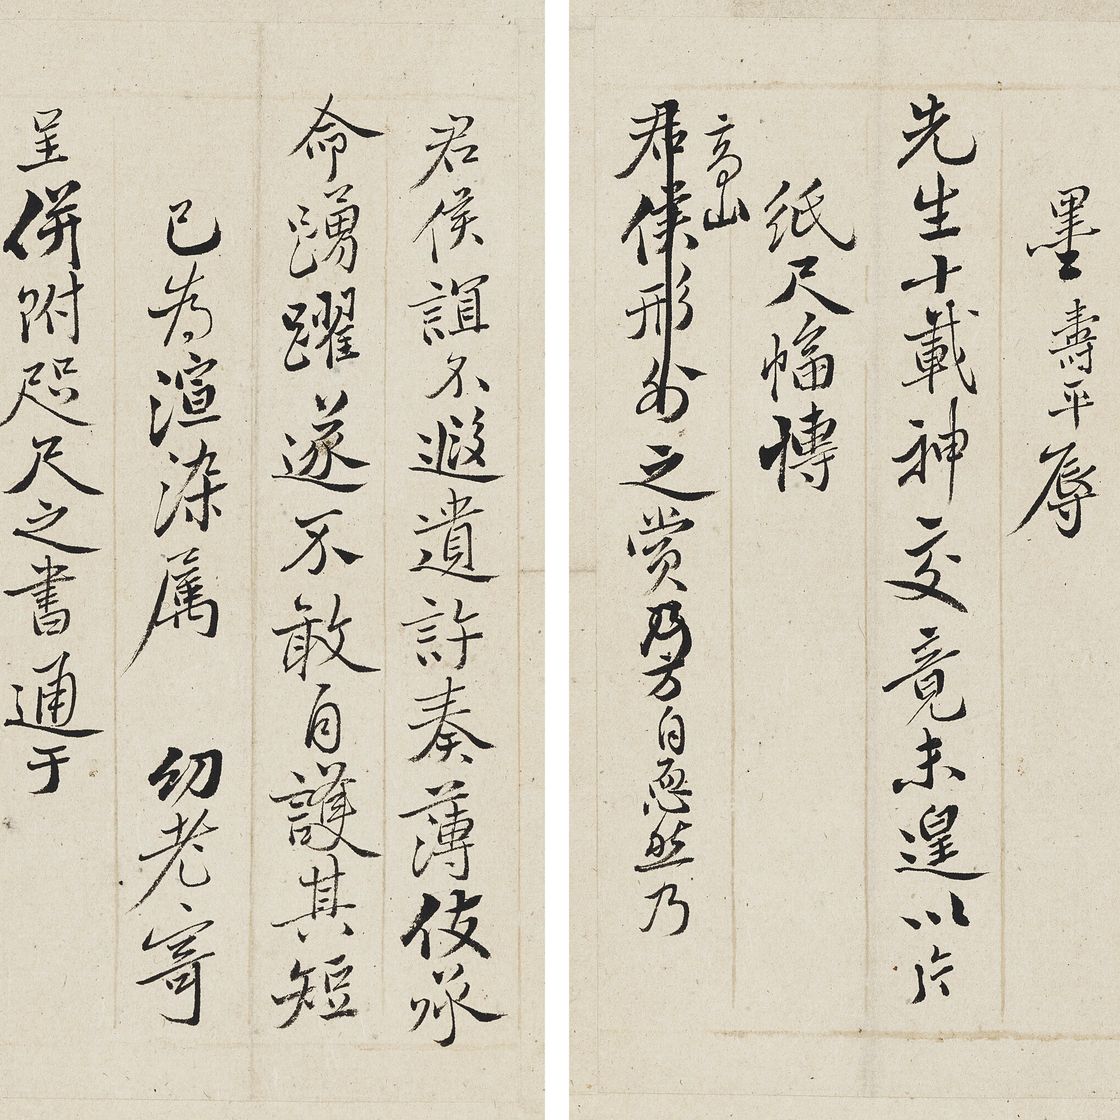 墨壽平辱
先生十載神交竟未遑以片
紙尺幅博
高山
君侯形外之賞乃方自恧然乃
君侯誼不遐遺許奏薄伎承
命踴躍遂不敢自護其短
已為渲染属 幼老寄
呈併附咫尺之書通于